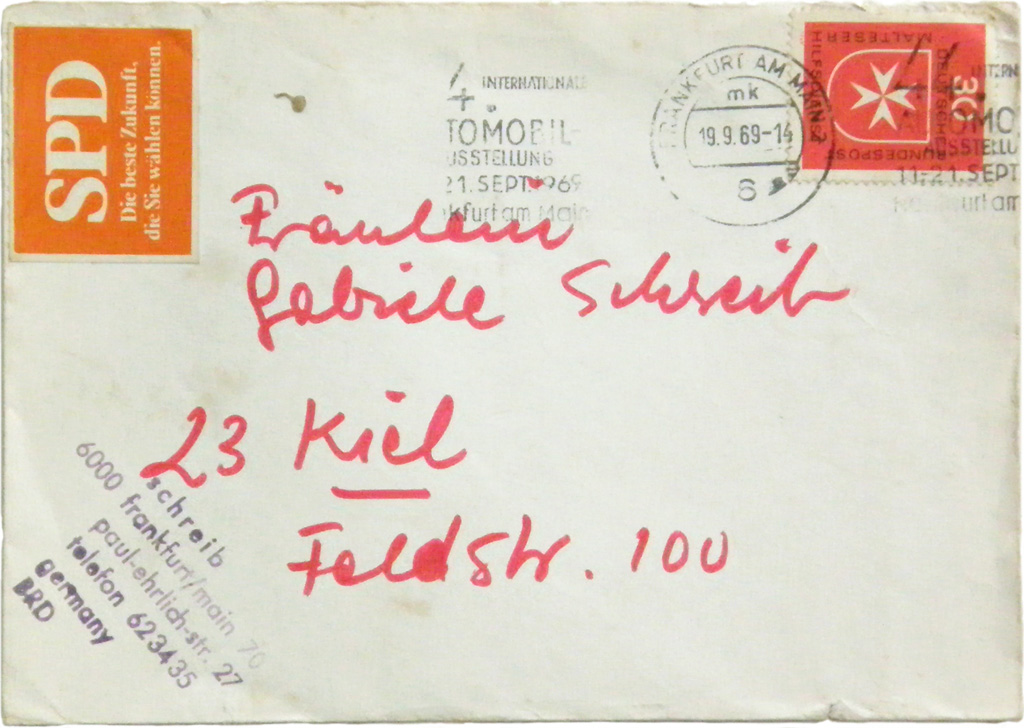 SPD
Die beste Zukunft,
die Sie wählen können.
INTERNATIONALE
TOMOBIL-
USSTELLUNG
21. SEPT. 1969
kfurt am Main
FRANKFURT AM MAIN
mk
19.9.69-14
6
MALTESER
HILFSDIENST
DEUTSCHE
BUNDESPOST
30
INTERN
OMO
USSTELLU
11.-21. SEPT
furt am
Fräulein
Gabriele Schreib
23 Kiel
Feldstr. 100
schreib
6000 frankfurt/main 70
paul-ehrlich-str. 27
telefon 623435
germany
BRD